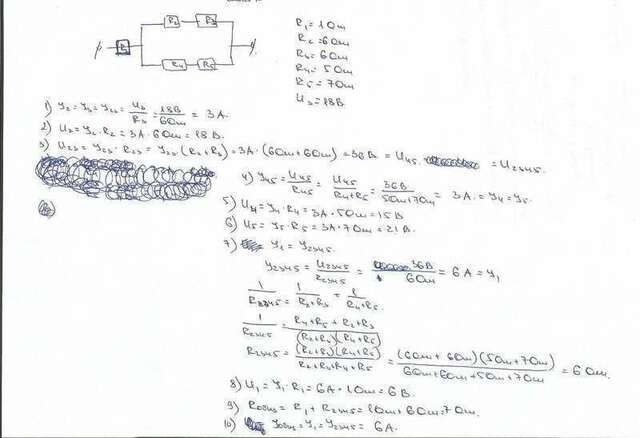 R1
R2
R3
R4
R5
R1 = 1 Ом
R2 = 6 Ом
R3 = 6 Ом
R4 = 5 Ом
R5 = 7 Ом
U3 = 18В
1) У2 = У3 = У23 = U3/R3 = 18В/6Ом = 3А.
2) U2 = У2 · R2 = 3А · 6Ом = 18В.
3) U23 = У23 · R23 = У23 · (R2 + R3) = 3А · (6Ом + 6Ом) = 36В = U45 = U2345.
4) У45 = U45/R45 = U45/(R4 + R5) = 36В/(5Ом + 7Ом) = 3А = У4 = У5.
5) U4 = У4 · R4 = 3А · 5Ом = 15В
6) U5 = У5 · R5 = 3А · 7Ом = 21В.
7) У1 = У2345.
У2345 = U2345/R2345 = 36В/6Ом = 6А = У1
1/R2345 = 1/(R2 + R3) = 1/(R4 + R5)
1/R2345 = (R4 + R5 + R2 + R3)/((R2 + R3)(R4 + R5))
R2345 = (R2 + R3)(R4 + R5)/(R2 + R3 + R4 + R5) = (6Ом + 6Ом)(5Ом + 7Ом)/(6Ом + 6Ом + 5Ом + 7Ом) = 6Ом.
8) U1 = У1 · R1 = 6А · 1Ом = 6В.
9) Rобщ = R1 + R2345 = 1Ом + 6Ом = 7Ом.
10) Уобщ = У1 = У2345 = 6А.